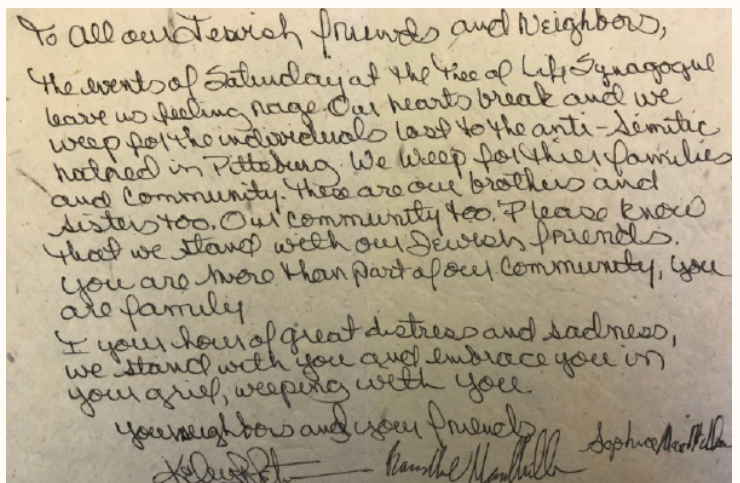 To all our Jewish friends and Neighbors,
The events of Saturday at the Tree of Life Synagogue
leave us feeling rage. Our hearts break and we
weep for the individuals lost to the anti-Semitic
hatred in Pittsburg. We weep for thier families
and community. These are our brothers and
sisters too. Our community too. Please know
that we stand with our Jewish friends.
You are more than part of our community, you
are family
I your hour of great distress and sadness,
we stand with you and embrace you in
your grief, weeping with you.
your neighbors and your friends
Sophie